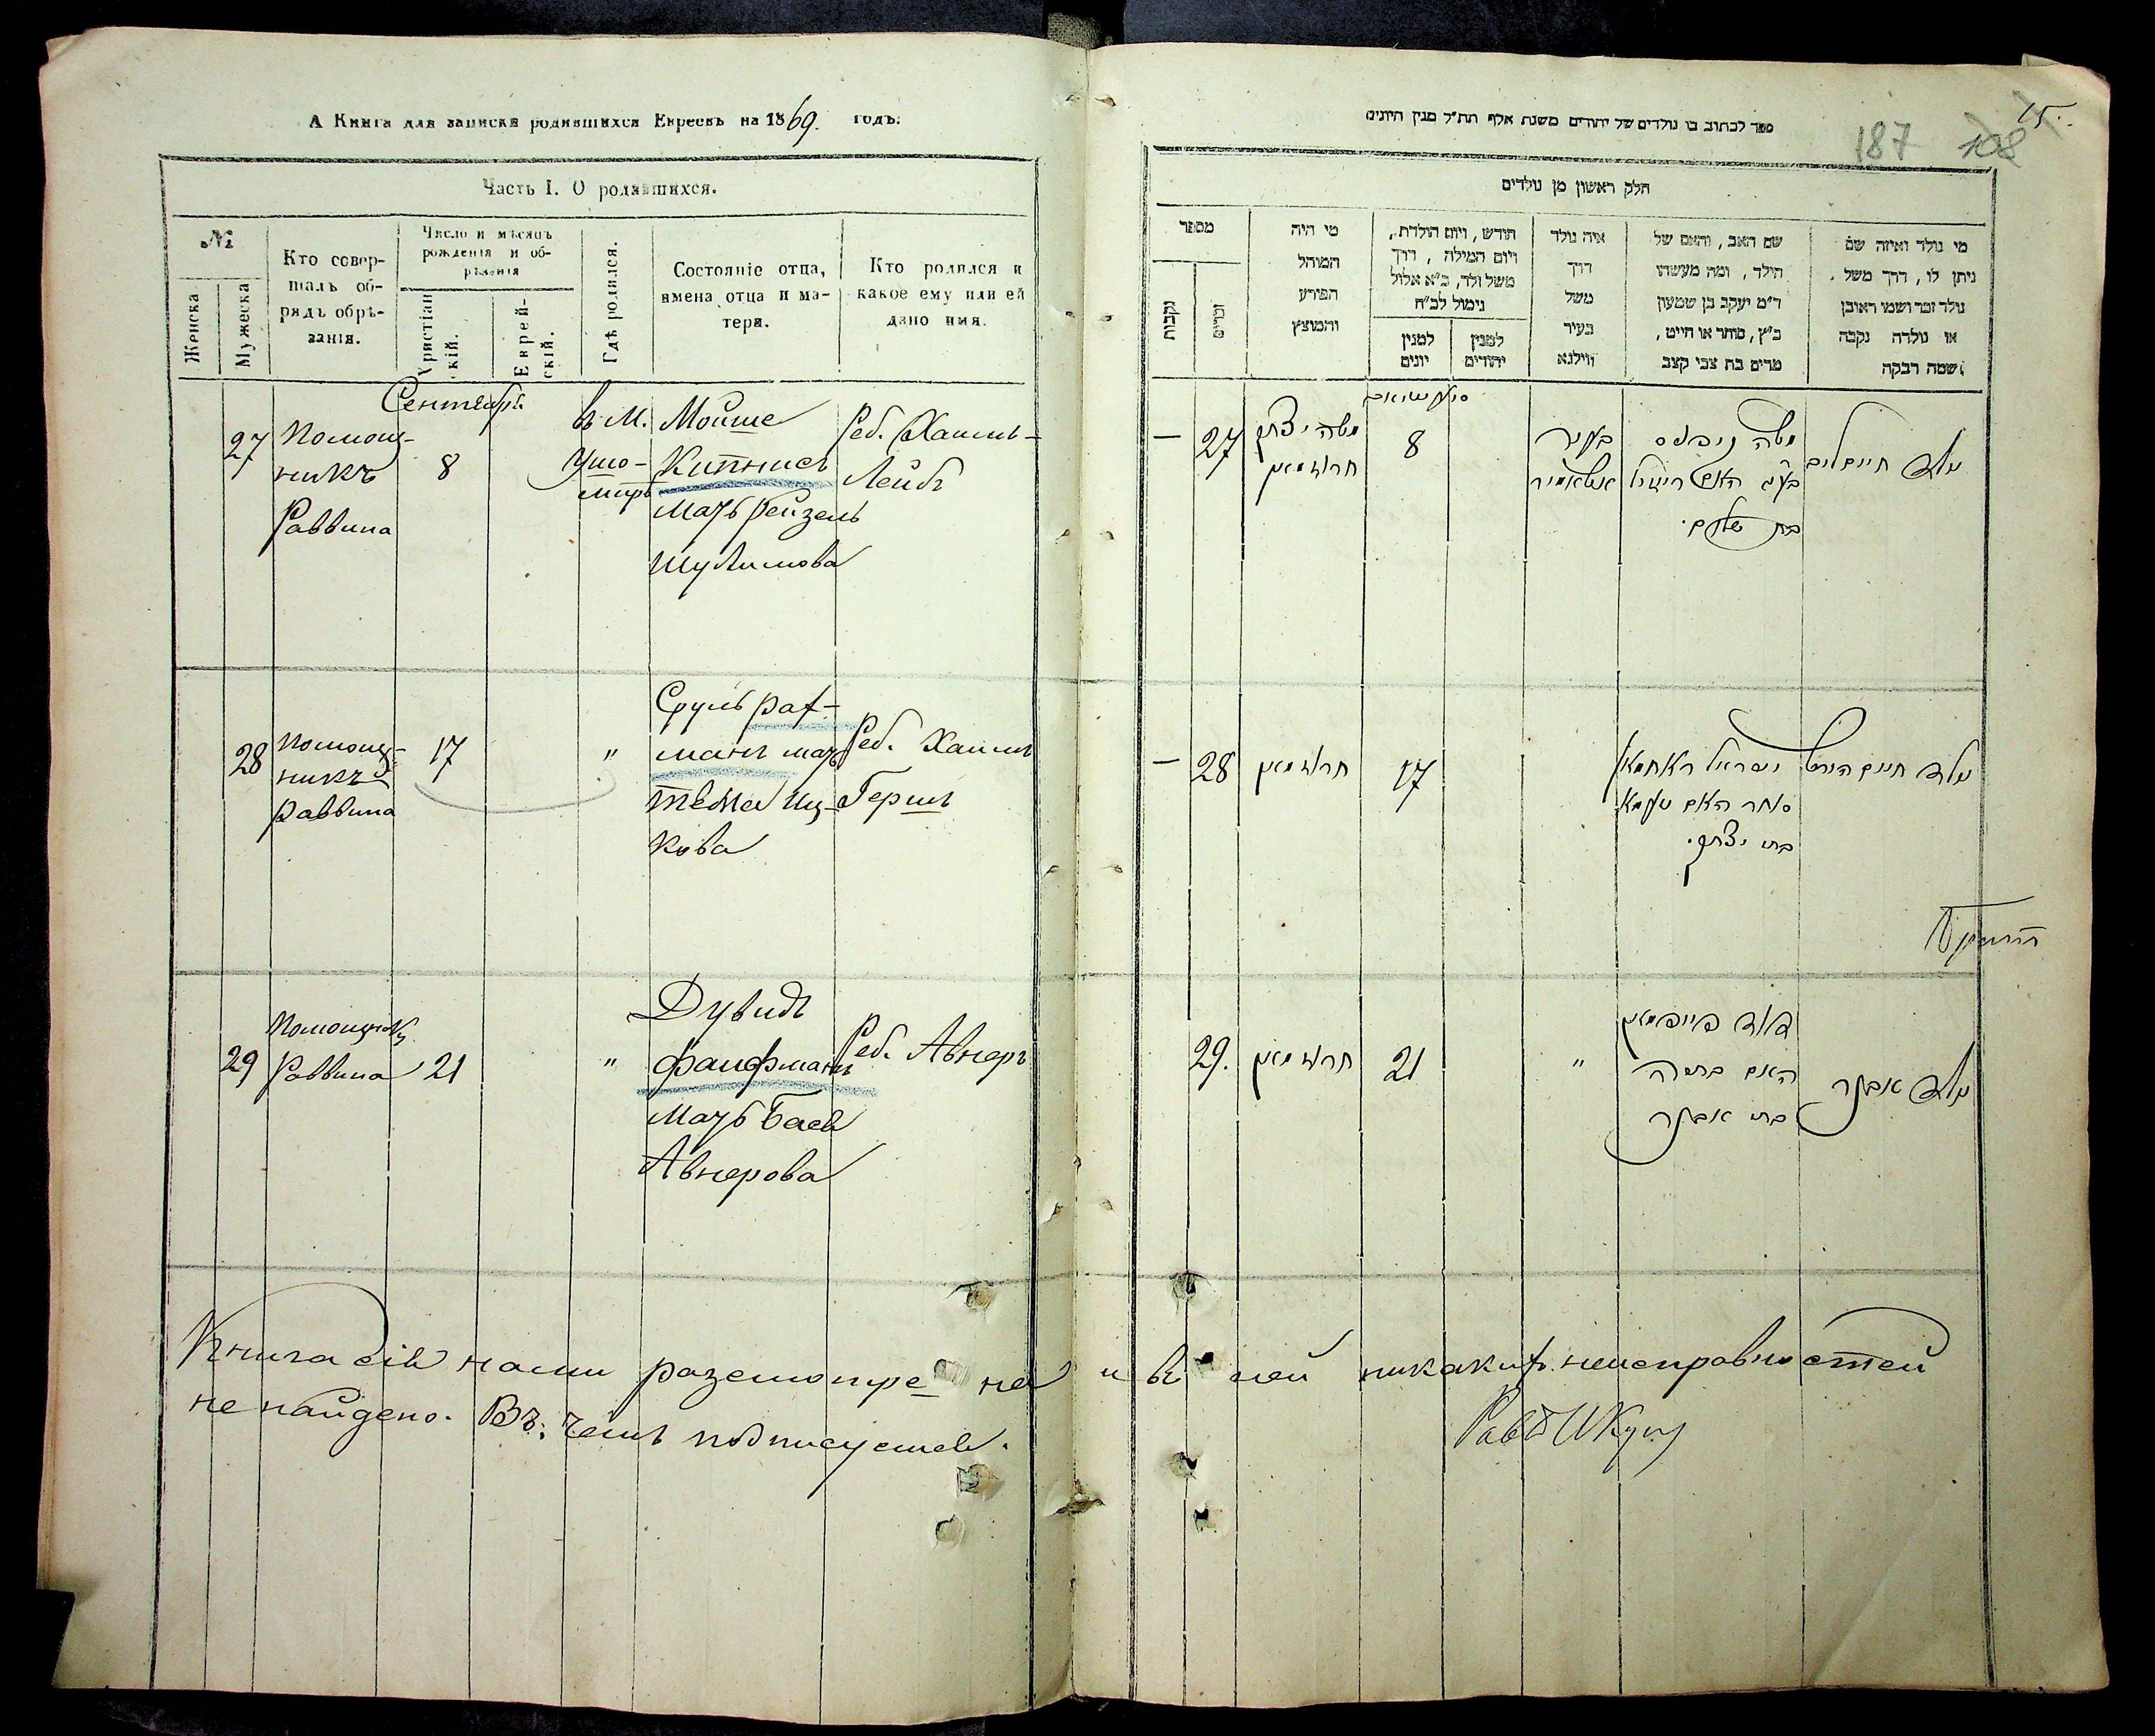 А Книга для записки родившихся Евреевъ на 1869. годъ.
Часть I. О родившихся.
№
Женска
Мужеска
Кто совер-
шалъ об-
рядъ обрѣ-
занія.
Число и мѣсяцъ
рожденія и об-
рѣзанія
Христіан
скій.
Еврей-
скій.
Гдѣ родился.
Состояніе отца,
имена отца и ма-
тери.
Кто родился и
какое ему или ей
дано имя.
Сентябрь
27
Помощ-
никъ
Раввина
8
въ М.
Ушо-
миръ
Мойше
Кипнисъ
мать Рейзель
Шулимова
Реб. Хаимъ-
Лейбъ
28
Помощ-
никъ
Раввина
17
"
Сруль Рах-
манъ мать
Иц-
кова
Реб. Хаимъ
Гершъ
29
Помощникъ
Раввина
21
"
Дувидъ
Фаифманъ
мать Бася
Авнерова
Реб. Авнеръ
Книга сія нами разсмотрена и въ ней никакихъ неисправностей
не найдено. Въ чемъ подписуемся.
ספר לכתוב בו נולדים של יהודים משנת אלף תת״ל מנין היונים
15.
187
108
חלק ראשון מן נולדים
מספר
נקבות
זכרים
מי היה
המוהל
הפורע
והמוצץ
חודש, ויום הולדת,
ויום המילה, דרך
משל ולד, כ״א אלול
נימול לכ״ח
למנין
יונים
למנין
יהודים
איה נולד
דרך
משל
בעיר
ווילנא
שם האב, והאם של
הילד, ומה מעשהו
ד״מ יעקב בן שמעון
כ״ץ, סוחר או חייט,
מרים בת צבי קצב
מי נולד ואיזה שם
ניתן לו, דרך משל,
נולד זכר ושמו ראובן
או נולדה נקבה
ושמה רבקה
—
27
משה יצחק
8
בעיר
משה קיפניס
האם רייזיל
בת שלום.
ילד חיים ליב
—
28
17
ישראל ראחמאן
סוחר האם
בת יצחק.
ילד חיים הירש
29.
21
"
דוד פייפמאן
האם באשה
בת אבנר
ילד אבנר